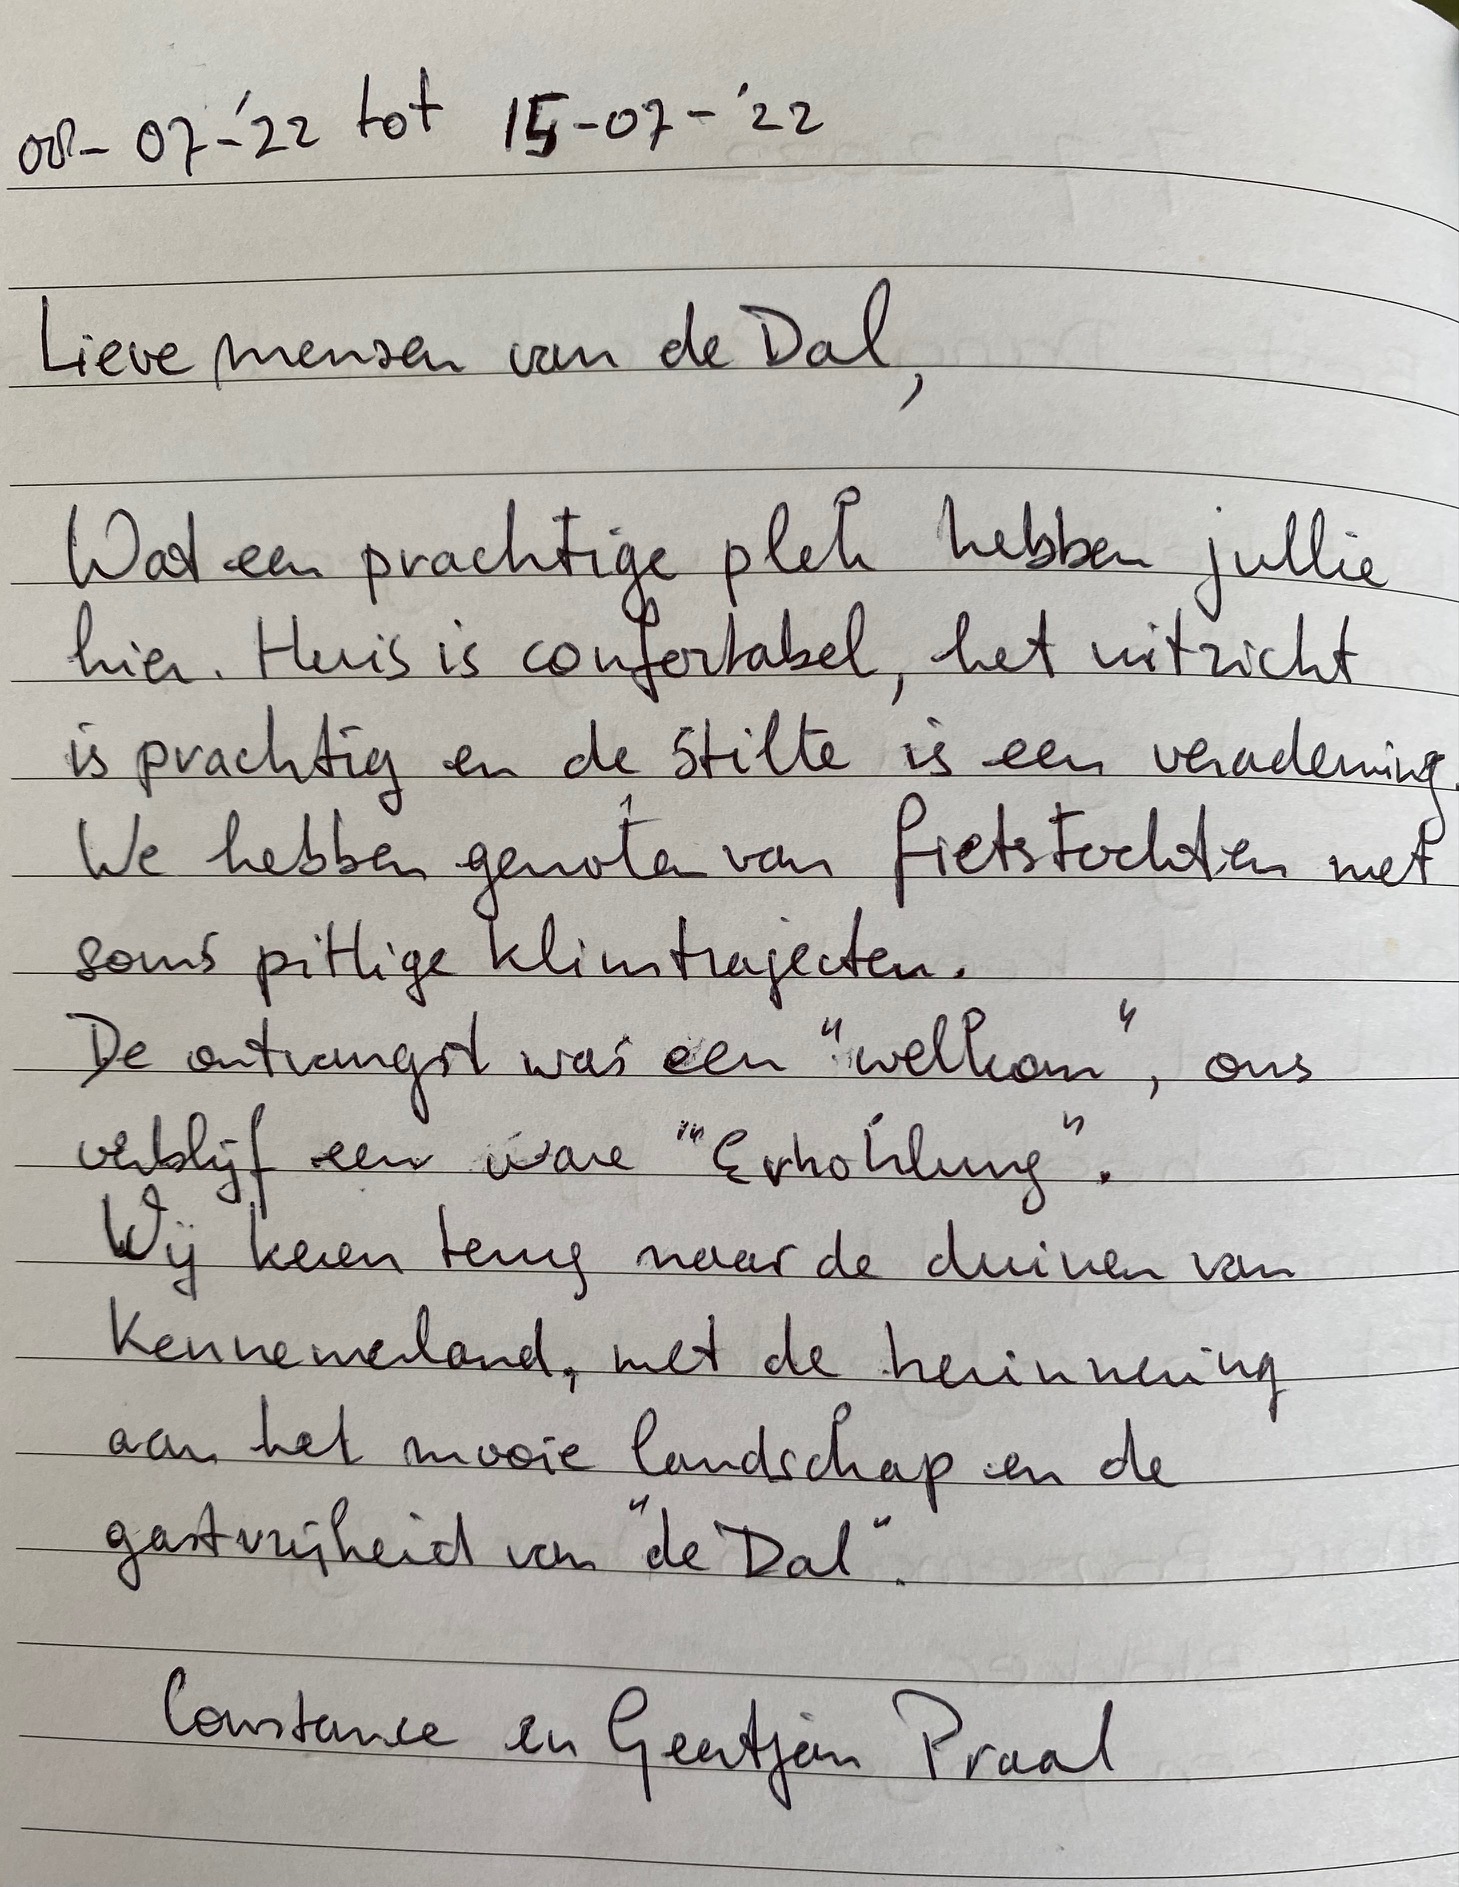 08-07-'22 tot 15-07-'22
Lieve mensen van de Dal,
Wat een prachtige plek hebben jullie
hier. Huis is comfortabel, het uitzicht
is prachtig en de stilte is een verademing.
We hebben genoten van fietstochten met
soms pittige klimtrajecten.
De ontvangst was een "welkom", ons
verblijf een ware "Erhohlung".
Wij keren terug naar de duinen van
Kennemerland, met de herinnering
aan het mooie landschap en de
gastvrijheid van "de Dal".
Constance en Geertjan Praal